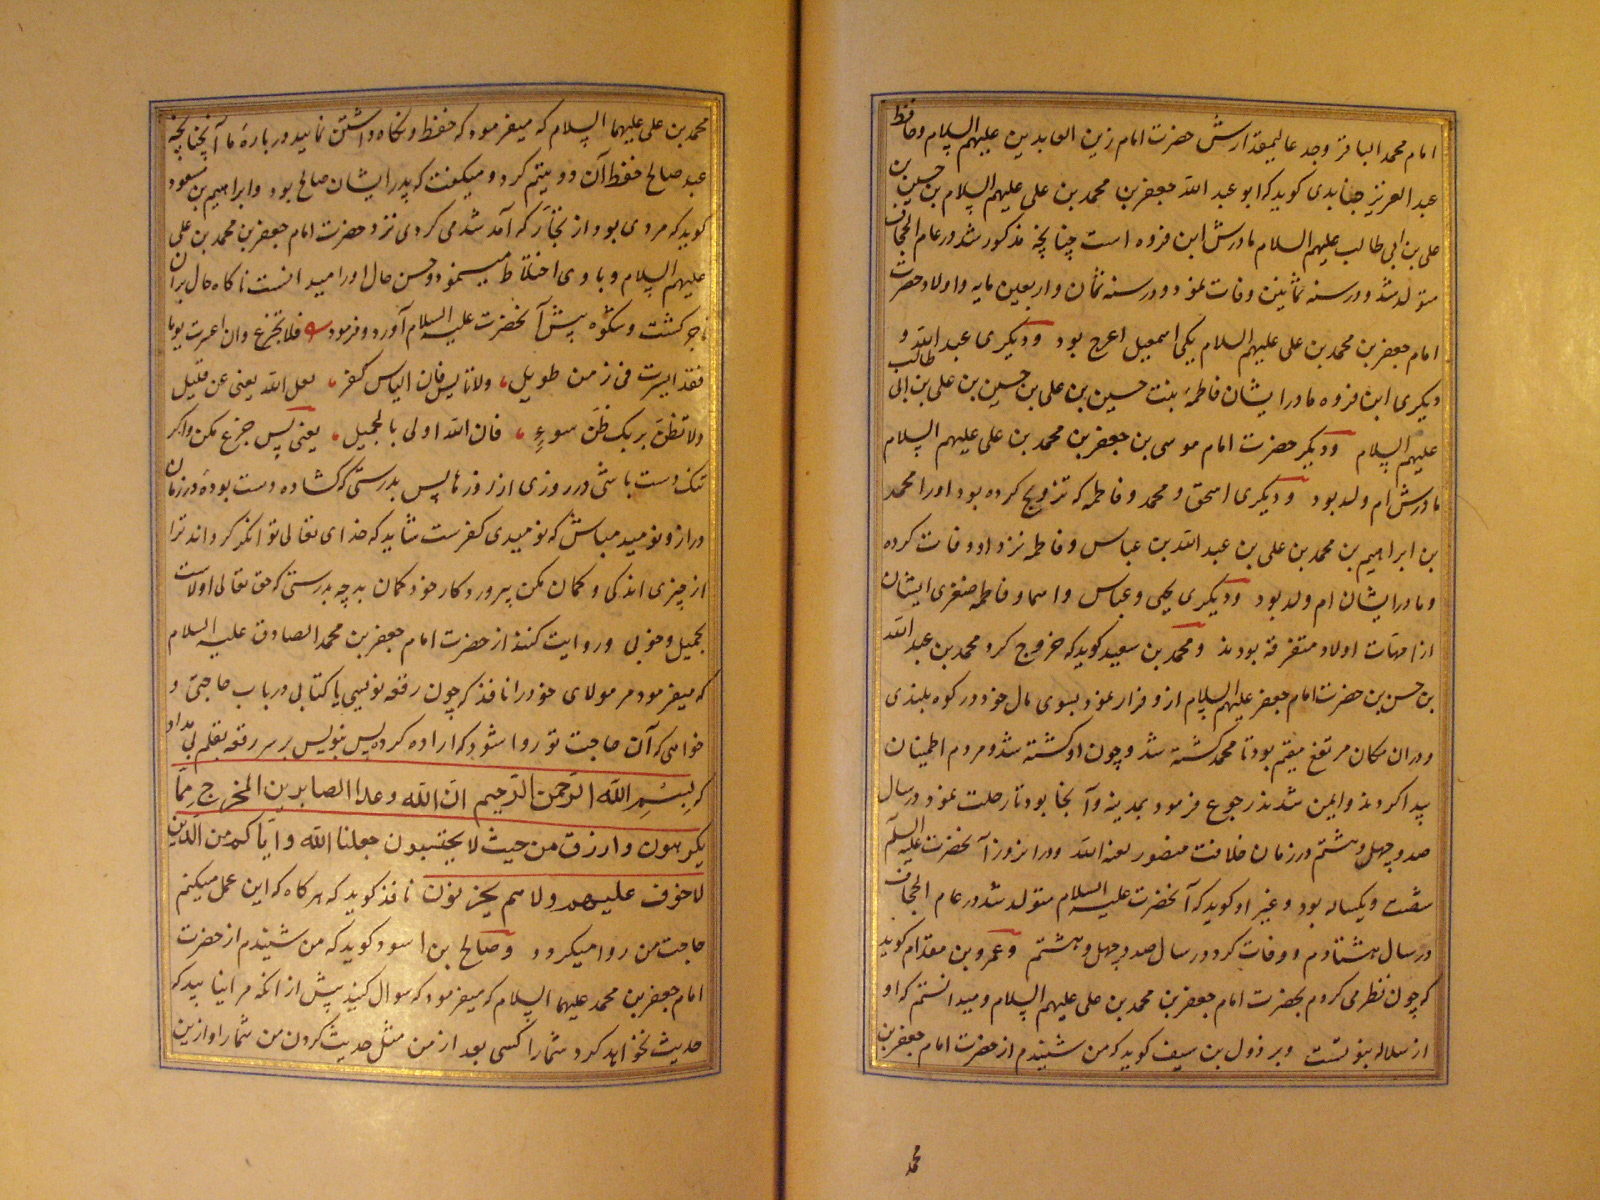 امام محمد الباقر وجد عالیمقدارش حضرت امام زین العابدین علیهم السلام وحافظ
عبد العزیز جنابدی کوید که ابو عبد الله جعفر بن محمد بن علی علیهم السلام بن حسین بن
علی بن ابی طالب علیهم السلام مادرش ابن فروه است چنانچه مذکور شد در عام الجحاف
متولد شد ودر سنه ثمانین وفات نمود ودر سنه ثمان واربعین مایه واولاد حضرت
امام جعفر بن محمد بن علی علیهم السلام یکی اسمعیل اعرج بود ودیکری عبد الله و
دیکری ابن فروه مادر ایشان فاطمهٔ بنت حسین بن علی بن حسین بن علی بن ابی طالب
علیهم السلام ودیکر حضرت امام موسی بن جعفر بن محمد بن علی علیهم السلام
مادرش ام ولد بود ودیکری اسحق ومحمد وفاطمه که تزویج کرده بود اورا محمد
بن ابراهیم بن محمد بن علی بن عبد الله بن عباس وفاطمه نزد او وفات کرده
ومادر ایشان ام ولد بود ودیکری یحیی وعباس واسما وفاطمه صغری ایشان
از امهات اولاد متفرقه بودند ومحمد بن سعید کوید که خروج کرد محمد بن عبد الله
بن حسن بن حضرت امام جعفر علیهم السلام از و فرار نمود بسوی مال خود در کوه بلندی
ودران مکان مرتفع مقیم بود تا محمد کشته شد وچون او کشته شد ومردم اطمینان
پیدا کردند وایمن شدند رجوع فرمود بمدینه وآنجا بود تا رحلت نمود در سال
صد وچهل وهشتم در زمان خلافت منصور لعنه الله ودر انروز آنحضرت علیه السلم
شصت ویکساله بود وغیر او کوید که آنحضرت علیه السلام متولد شد در عام الجحاف
در سال هشتادم ووفات کرد در سال صد وچهل وهشتم وعمرو بن مقدام کوید
که چون نظر می کردم بحضرت امام جعفر بن محمد بن علی علیهم السلام ومیدانستم که او
از سلاله نبوتست وبرذول بن سیف کوید که من شنیدم از حضرت امام جعفر بن
محمد
محمد بن علی علیهما السلام که میفرمود که حفظ ونکاه داشتن نمایید دربارهٔ ما آنچنانچه
عبد صالح حفظ آن دو یتیم کرد ومیکفت که پدر ایشان صالح بود وابراهیم بن مسعود
کوید که مردی بود از تجار که آمد شد می کردی نزد حضرت امام جعفر بن محمد بن علی
علیهم السلام وباوی اختلاط مینمود وحسن حال اورا میدانست ناکاه حال بران
تاجر کشت وشکوه پیش آنحضرت علیه السلام آورد وفرمود فلا تجزع وان اعسرت یوما
فقد ایسرت فی زمن طویل ولا تایس فان الیاس کفر لعل الله یغنی عن قلیل
ولا تظن بربک ظن سوء فان الله اولی بالجمیل یعنی پس جزع مکن واکر
تنک دست باشی در روزی از روزها پس بدرستی که کشاده دست بودهٔ در زمان
دراز ونومید مباش که نومیدی کفرست شاید که خدای تعالی توانکر کرداند ترا
از چیزی اندکی وکمان مکن بپروردکار خود کمان بد چه بدرستی که حق تعالی اولاست
بجمیل وخوبی وروایت کنند از حضرت امام جعفر بن محمد الصادق علیه السلام
که میفرمود مر مولای خود را نافذ که چون رقعه نویسی یا کتابی در باب حاجتی و
خواهی که آن حاجت تو روا شود که اراده کرده پس بنویس بر سر رقعه بقلم بی مداد
که بسم الله الرحمن الرحیم ان الله وعد الصابرین المخرج مما
یکرهون وارزق من حیث لا یحتسبون جعلنا الله وایاکم من الذین
لا خوف علیهم ولا هم یحزنون نافذ کوید که هرکاه که این عمل میکنم
حاجت من روا میکردد وصالح بن اسود کوید که من شنیدم از حضرت
امام جعفر بن محمد علیهما السلام که میفرمود که سوال کنید پیش از انکه مرا نیابید که
حدیث نخواهد کرد شما را کسی بعد از من مثل حدیث کردن من شما را وازین